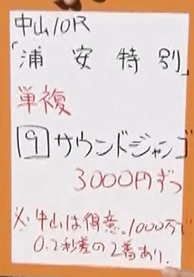 中山10R
「浦安特別」
単複
9 サウンドジャンゴ
3000円ずつ
※中山は得意。1000万で
0.2秒差の2着あり。